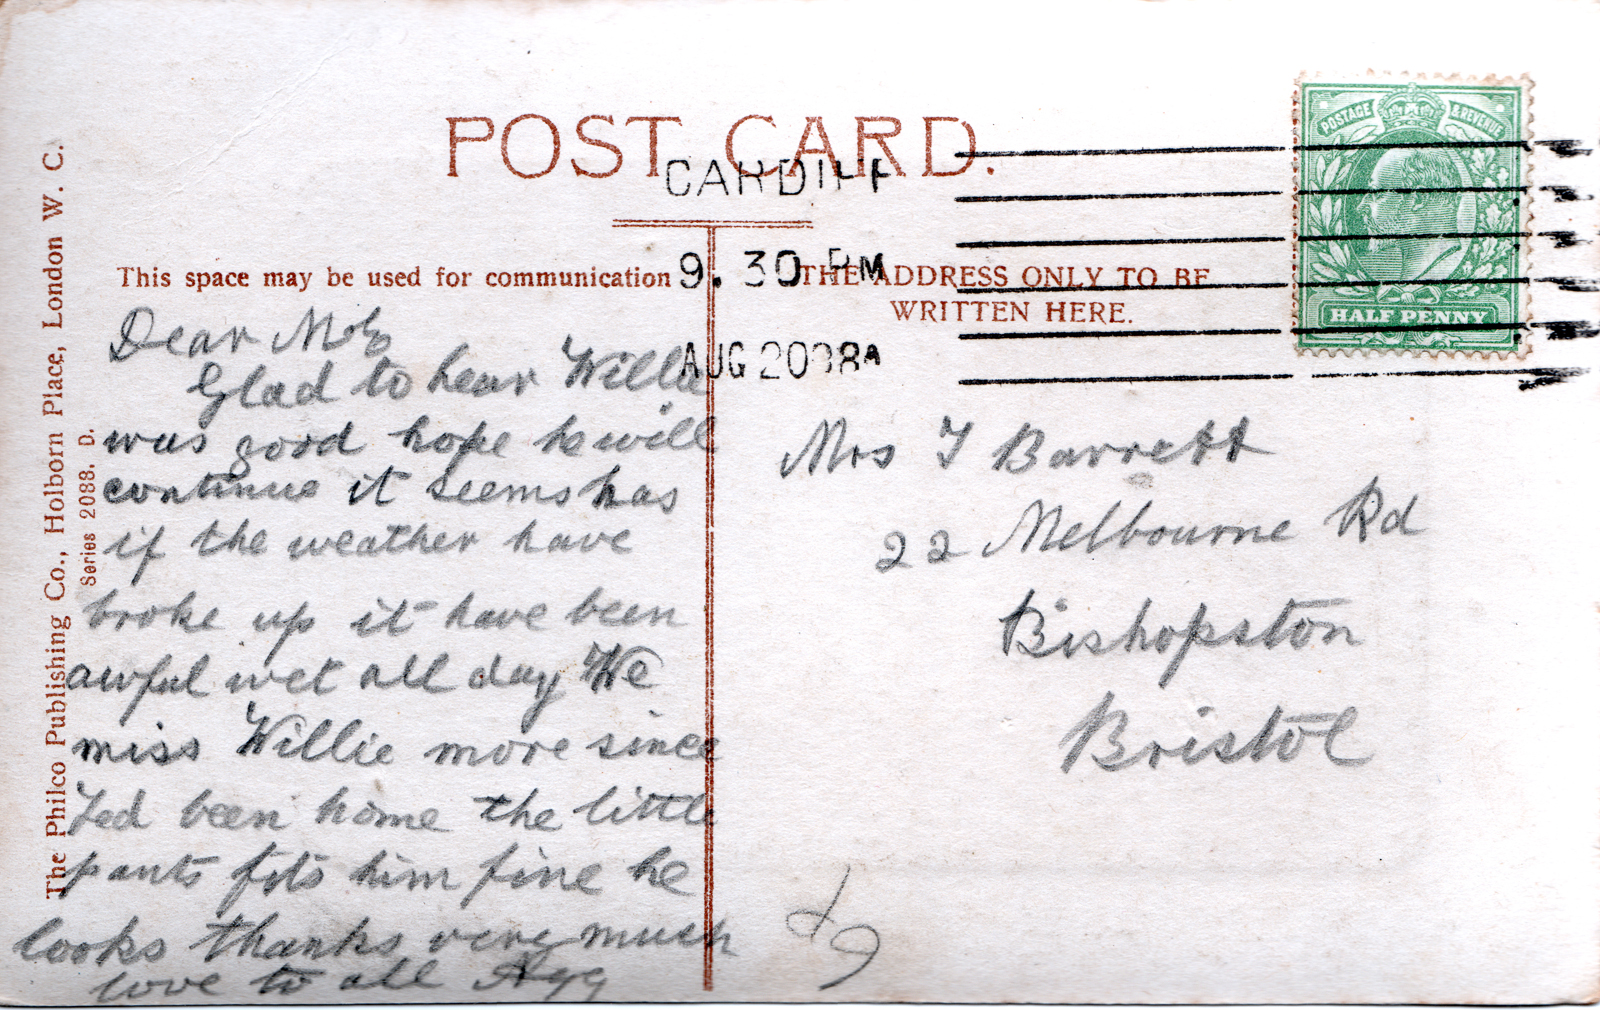 POST CARD.
CARDIFF
9.30 PM
AUG 20 08
POSTAGE & REVENUE
HALF PENNY
The Philco Publishing Co., Holborn Place, London W. C.
Series 2088. D.
This space may be used for communication
THE ADDRESS ONLY TO BE
WRITTEN HERE.
Dear
Glad to hear Willie
was good hope he will
continue it seems has
if the weather have
broke up it have been
awful wet all day We
miss Willie more since
Ted been home the little
pants fits him fine he
looks thanks very much
love to all Agg
Mrs T Barrett
22 Melbourne Rd
Bishopston
Bristol